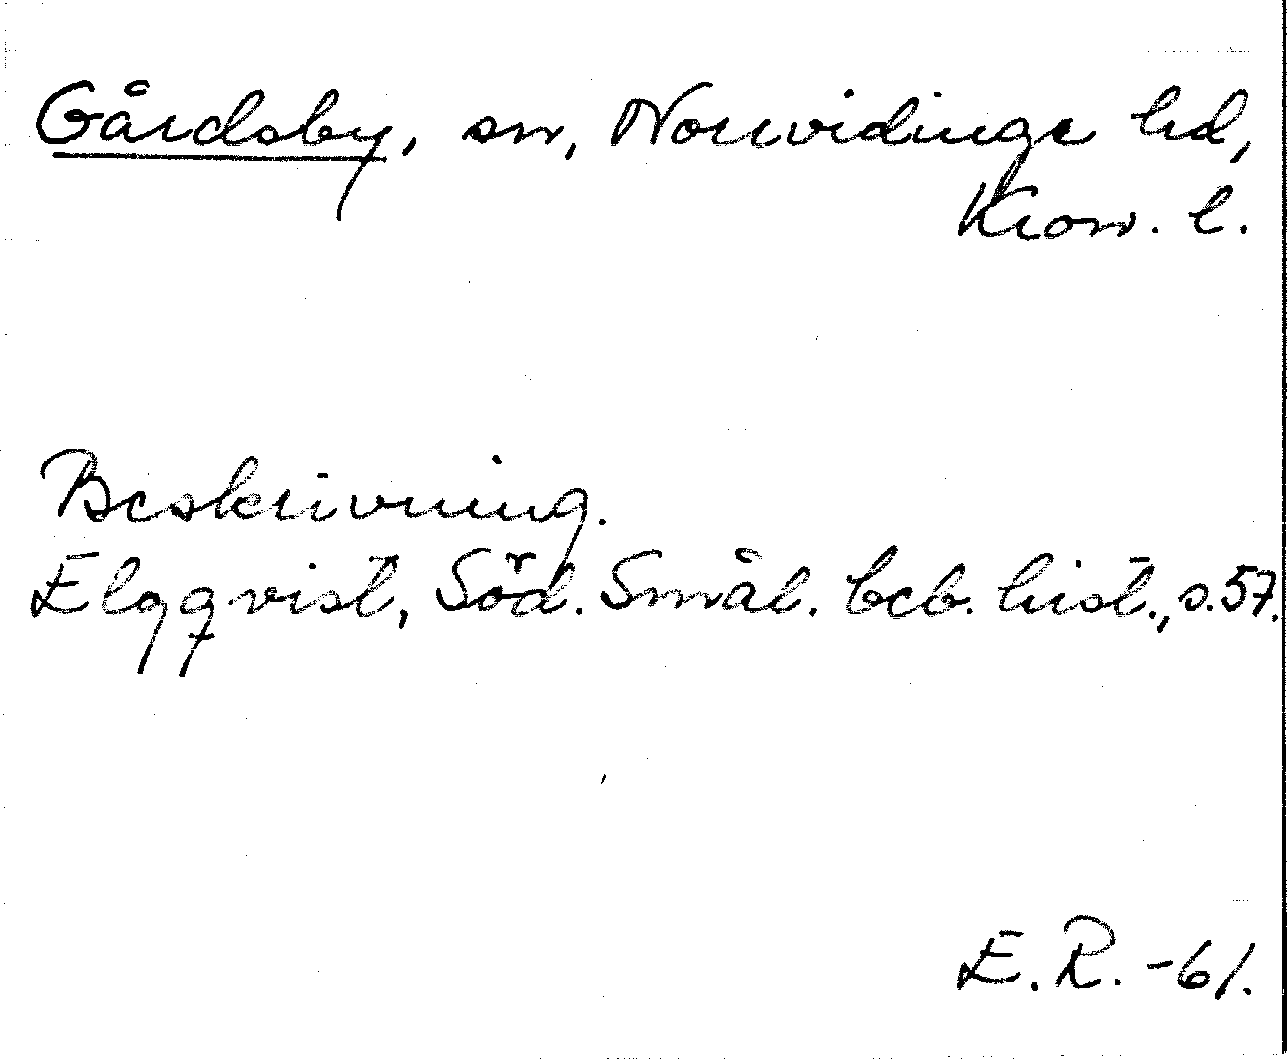 Gårdsby, sn, Norrvidinge hd,
Kron. l.
Beskrivning.
Elgqvist, Söd. Smål. beb. hist., s. 57.
E. R. -61.